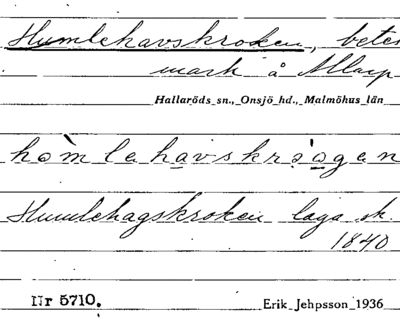 Humlehavskroken, betes
mark å Allarp
Hallaröds sn., Onsjö hd., Malmöhus län
hòmlehavskråogen
Humlehagskroken laga sk.
1840
Nr 5710.
Erik Jehpsson 1936